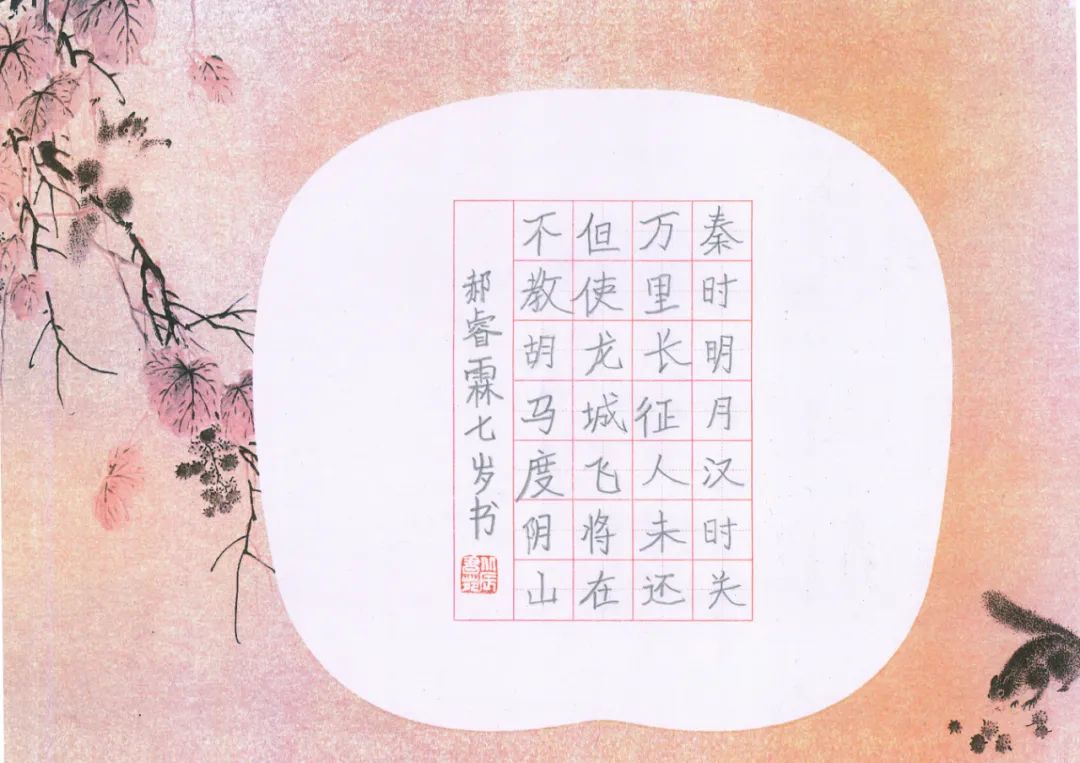 秦时明月汉时关
万里长征人未还
但使龙城飞将在
不教胡马度阴山
郝睿霖七岁书